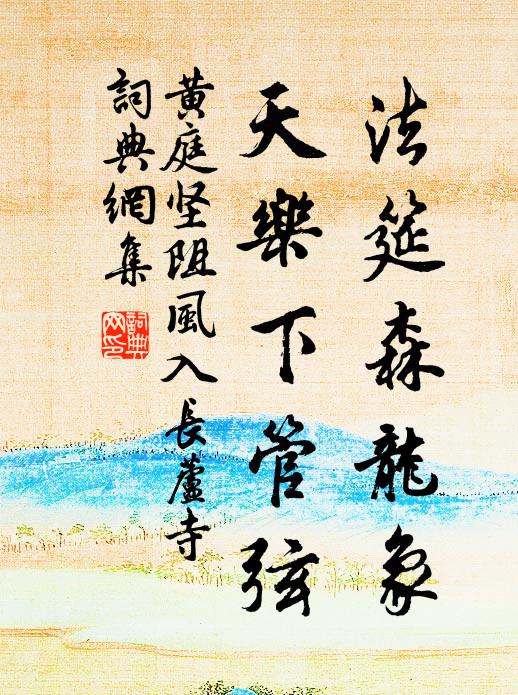 法筵森龍象
天樂下管弦
黃庭坚阻風入長蘆寺
詞典網集
詞典
网印